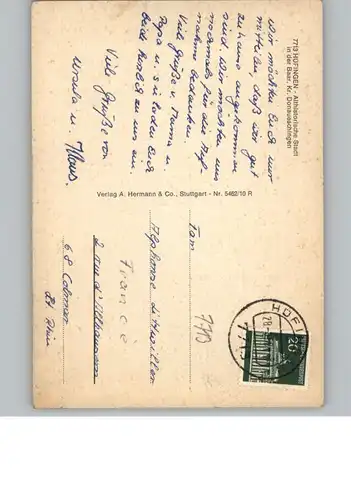 7713 HÜFINGEN - Althistorische Stadt
in der Baar, Kr. Donaueschingen
Wir möchten Euch nur
mitteilen, daß wir gut
zu hause angekommen
sind. Wir möchten uns
nochmals für die Auf-
nahme bedanken.
Viele Grüße v. Mama u.
Papa u. sie laden Euch
beide herzlich zu uns ein.
Viele Grüße von
Ursula u. Klaus.
Verlag A. Hermann & Co., Stuttgart - Nr. 5462/10 R
Fam
Alphonse
2 rue d'
68 Colmar
Ht Rhin
France
7713
HÜFI
20